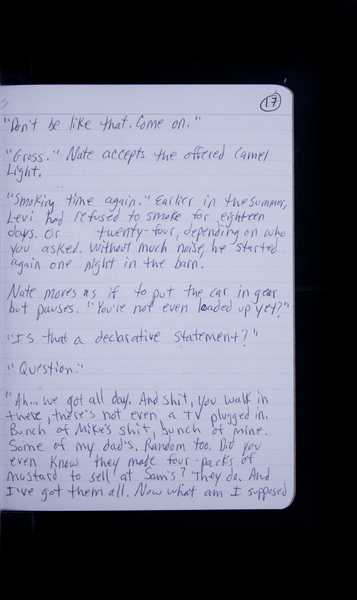 17
"Don't be like that. Come on."
"Gross." Nate accepts the offered Camel
Light.
"Smoking time again." Earlier in the summer,
Levi had refused to smoke for eighteen
days. Or twenty-four, depending on who
you asked. Without much noise, he started
again one night in the barn.
Nate moves as if to put the car in gear
but pauses. "You're not even loaded up yet?"
"Is that a declarative statement?"
"Question."
"Ah... we got all day. And shit, you walk in
there, there's not even a TV plugged in.
Bunch of Mike's shit, bunch of mine.
Some of my dad's. Random too. Did you
even know they made four-packs of
mustard to sell at Sam's? They do. And
I've got them all. Now what am I supposed